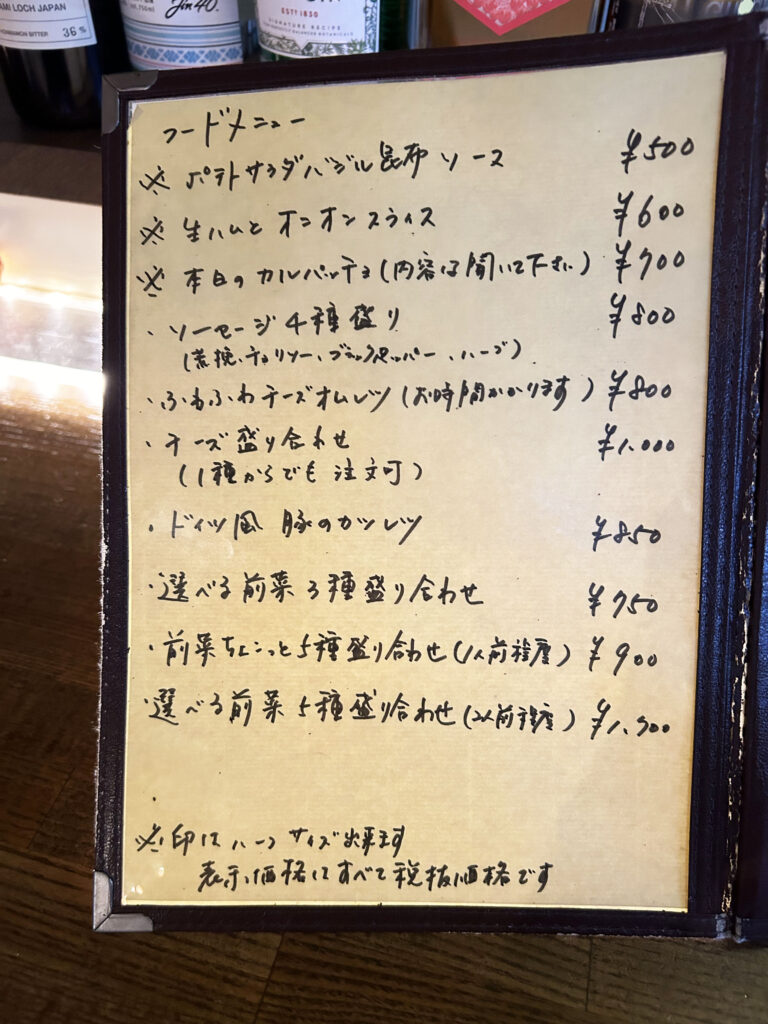 AMI LOCH JAPAN
36%
Jin40.
ESTD 1830
SIGNATURE RECIPE
フードメニュー
※ ポテトサラダバジル昆布ソース ¥500
※ 生ハムとオニオンスライス ¥600
※ 本日のカルパッチョ(内容は聞いて下さい) ¥700
・ソーセージ4種盛り ¥800
(荒挽、チョリソー、ブラックペッパー、ハーブ)
・ふわふわチーズオムレツ(お時間かかります) ¥800
・チーズ盛り合わせ ¥1,000
(1種からでも注文可)
・ドイツ風 豚のカツレツ ¥850
・選べる前菜3種盛り合わせ ¥750
・前菜ちょこっと5種盛り合わせ(1人前程度) ¥900
・選べる前菜5種盛り合わせ(2人前程度)
・
※印はハーフサイズ出来ます
表示価格はすべて税抜価格です